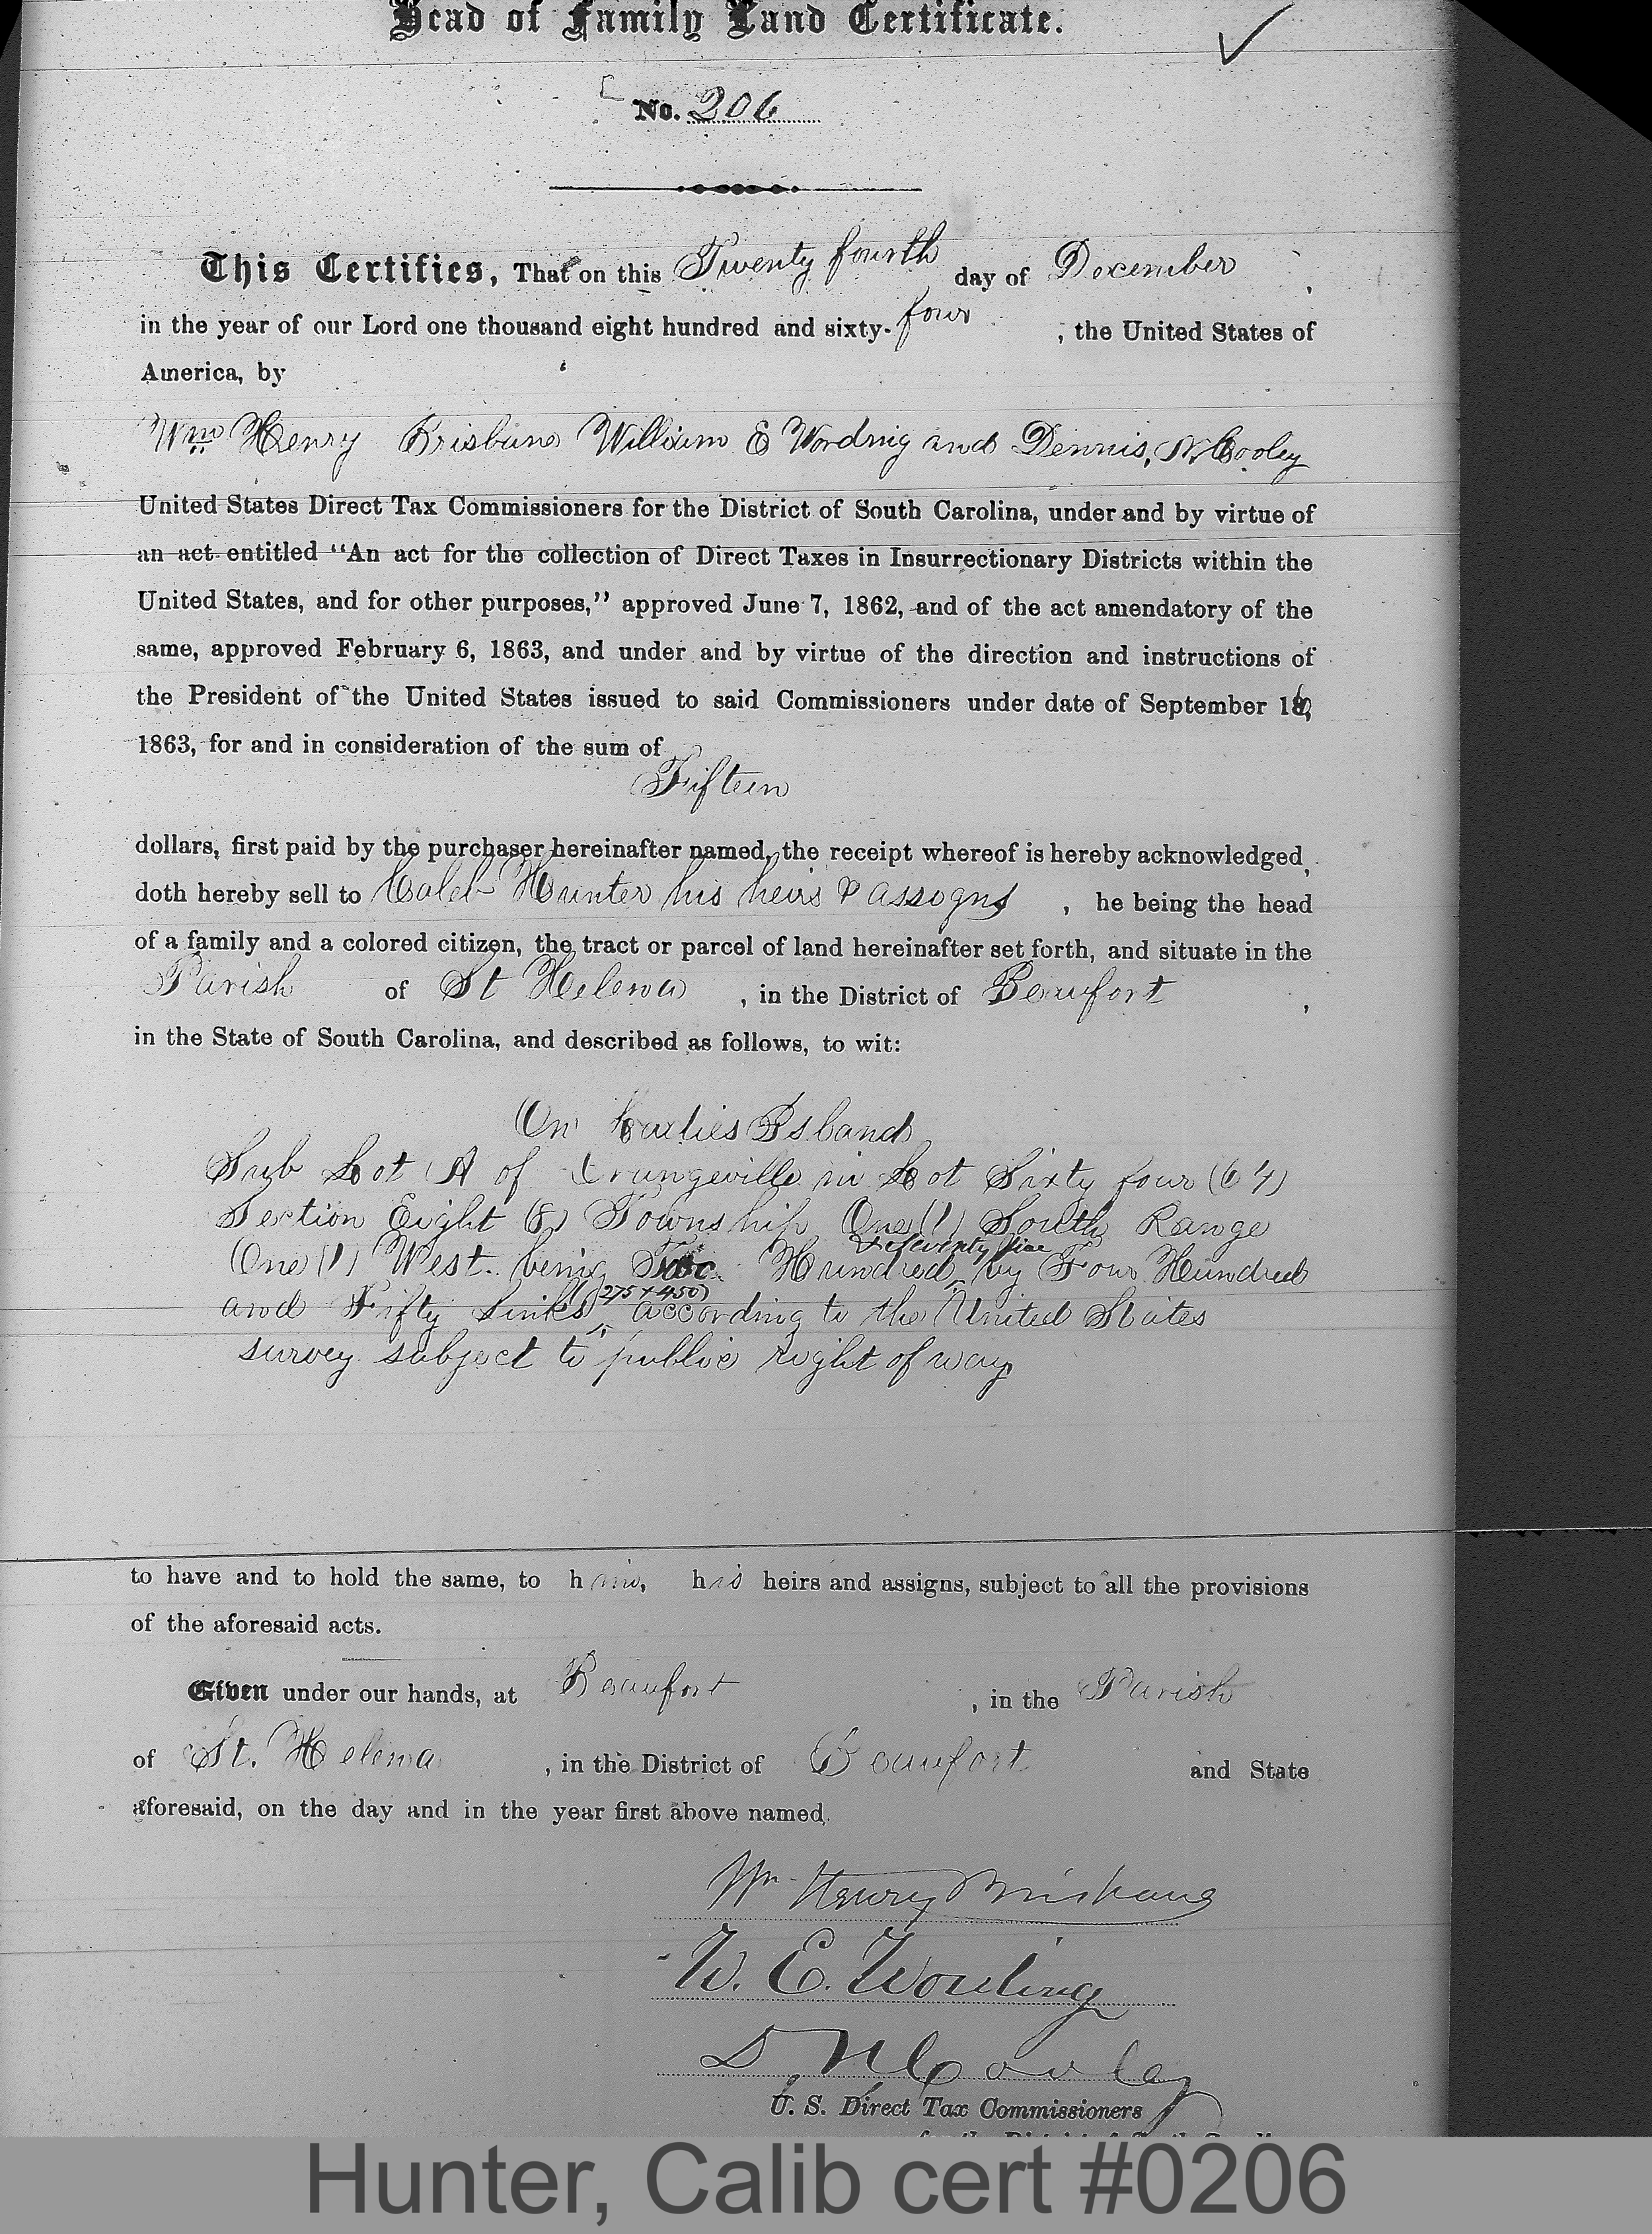 Head of Family Land Certificate.
No. 206
This Certifies, That on this Twenty fourth day of December,
in the year of our Lord one thousand eight hundred and sixty-four, the United States of
America, by
Wm Henry Brisbane William E Wording and Dennis, N Cooley
United States Direct Tax Commissioners for the District of South Carolina, under and by virtue of
an act entitled “An act for the collection of Direct Taxes in Insurrectionary Districts within the
United States, and for other purposes,” approved June 7, 1862, and of the act amendatory of the
same, approved February 6, 1863, and under and by virtue of the direction and instructions of
the President of the United States issued to said Commissioners under date of September 16,
1863, for and in consideration of the sum of
Fifteen
dollars, first paid by the purchaser hereinafter named, the receipt whereof is hereby acknowledged,
doth hereby sell to Caleb Hunter his heirs & assogns, he being the head
of a family and a colored citizen, the tract or parcel of land hereinafter set forth, and situate in the
Parish of St Helena, in the District of Beaufort,
in the State of South Carolina, and described as follows, to wit:
On Ladies Island
Sub Lot A of Orangeville in Lot Sixty four (64)
Section Eight (8) Township One (1) South Range
& Seventy five
One (1) West. being Two Hundred by Four Hundred
(275 x 450)
and Fifty Links according to the United States
survey subject to public right of way
to have and to hold the same, to him, his heirs and assigns, subject to all the provisions
of the aforesaid acts.
Given under our hands, at Beaufort, in the Parish
of St. Helena, in the District of Beaufort and State
aforesaid, on the day and in the year first above named.
Wm Henry Brisbane
W. E. Wording
D. N Cooley
U. S. Direct Tax Commissioners
Hunter, Calib cert #0206